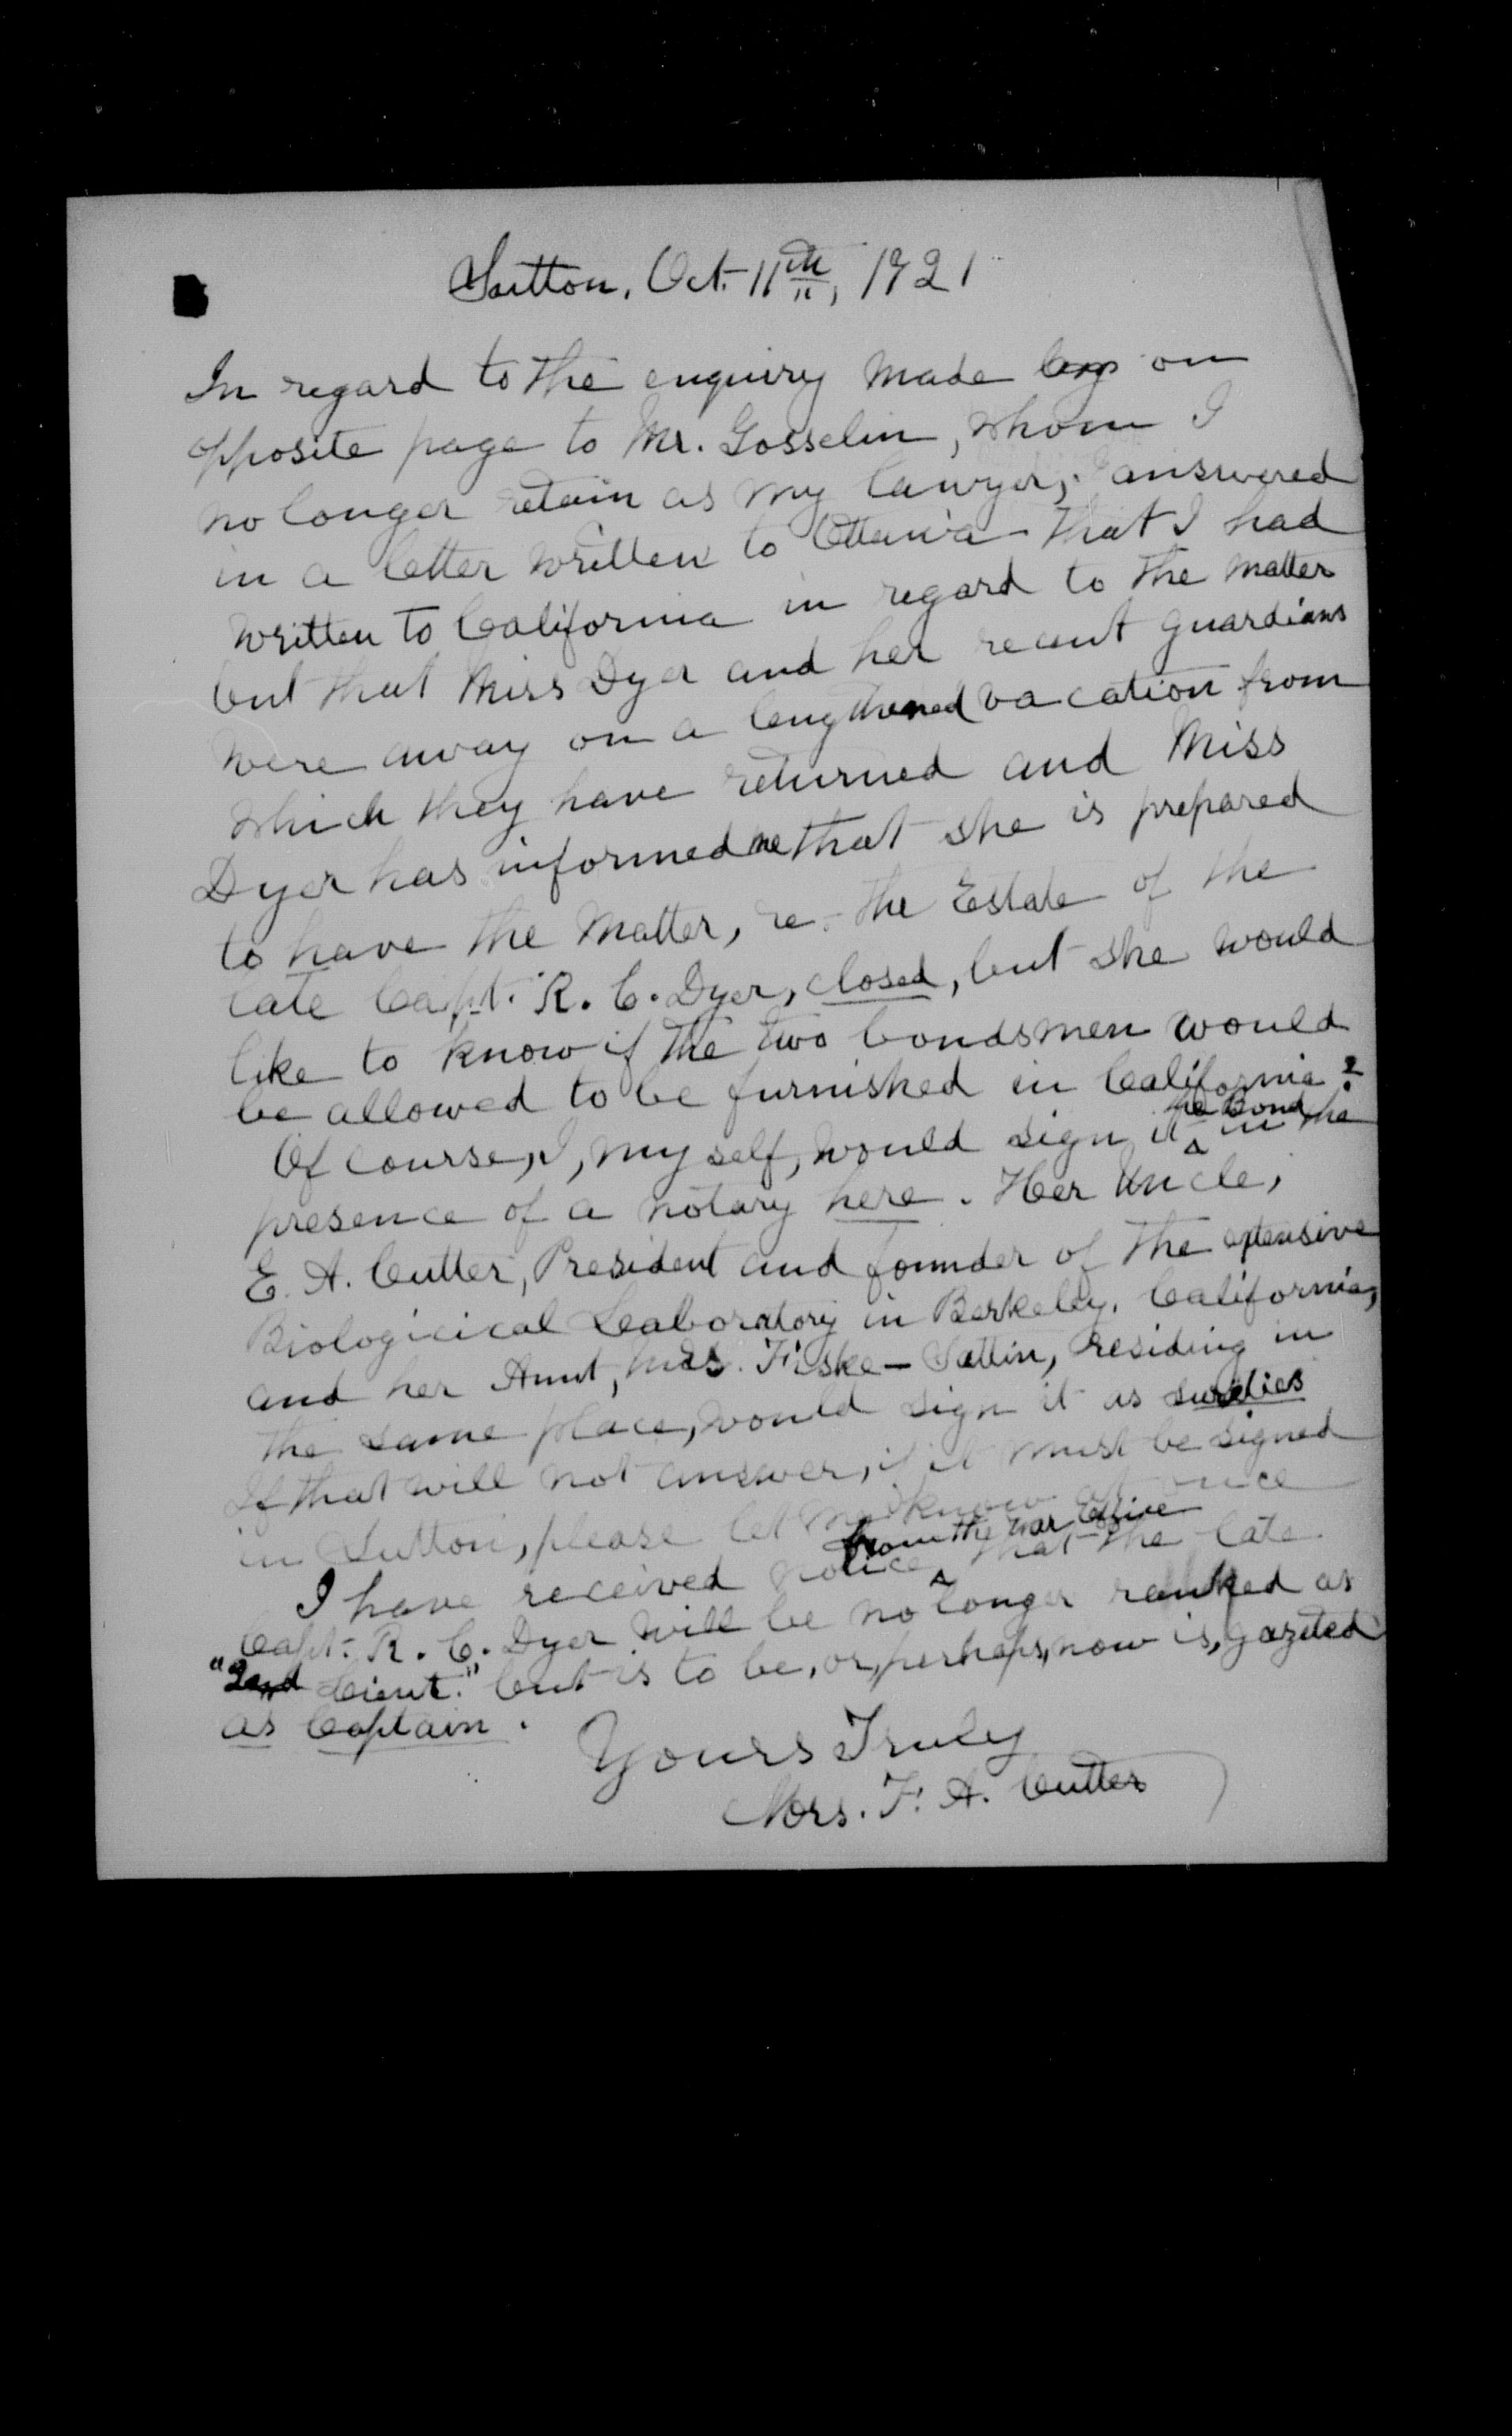 Sutton, Oct. 11th, 1921
In regard to the enquirey made on
opposite page to Mr. Gosselin, whom I
no longer retain as my lawyer, I answered
in a letter written to Ottawa that I had
written to California in regard to the matter
but that Miss Dyer and her recent guardians
were away on a lengthened vacation from
which they have returned and Miss
Dyer has informed me that she is prepared
to have the matter, re. the Estate of the
late Capt. R. C. Dyer, closed, but she would
like to know if the two bondsmen would
be allowed to be furnished in California?
Of course, I, myself, would sign it the Bond in the
presence of a notary here. Her Uncle,
E. A. Cutter, President and founder of the extensive
Biologicical Laboratory in Berkeley, California,
and her Aunt, Mrs. Fiske-Sattin, residing in
the same place, would sign it as sureties
If that will not answer, if it must be signed
in Sutton, please let me know at once
I have received notice from the War Office that the late
Capt. R. C. Dyer will be no longer ranked as
"2nd Lieut." but is to be, or, perhaps, now is, gazeted
as Captain.
Yours Truly
Mrs. F. A. Cutter